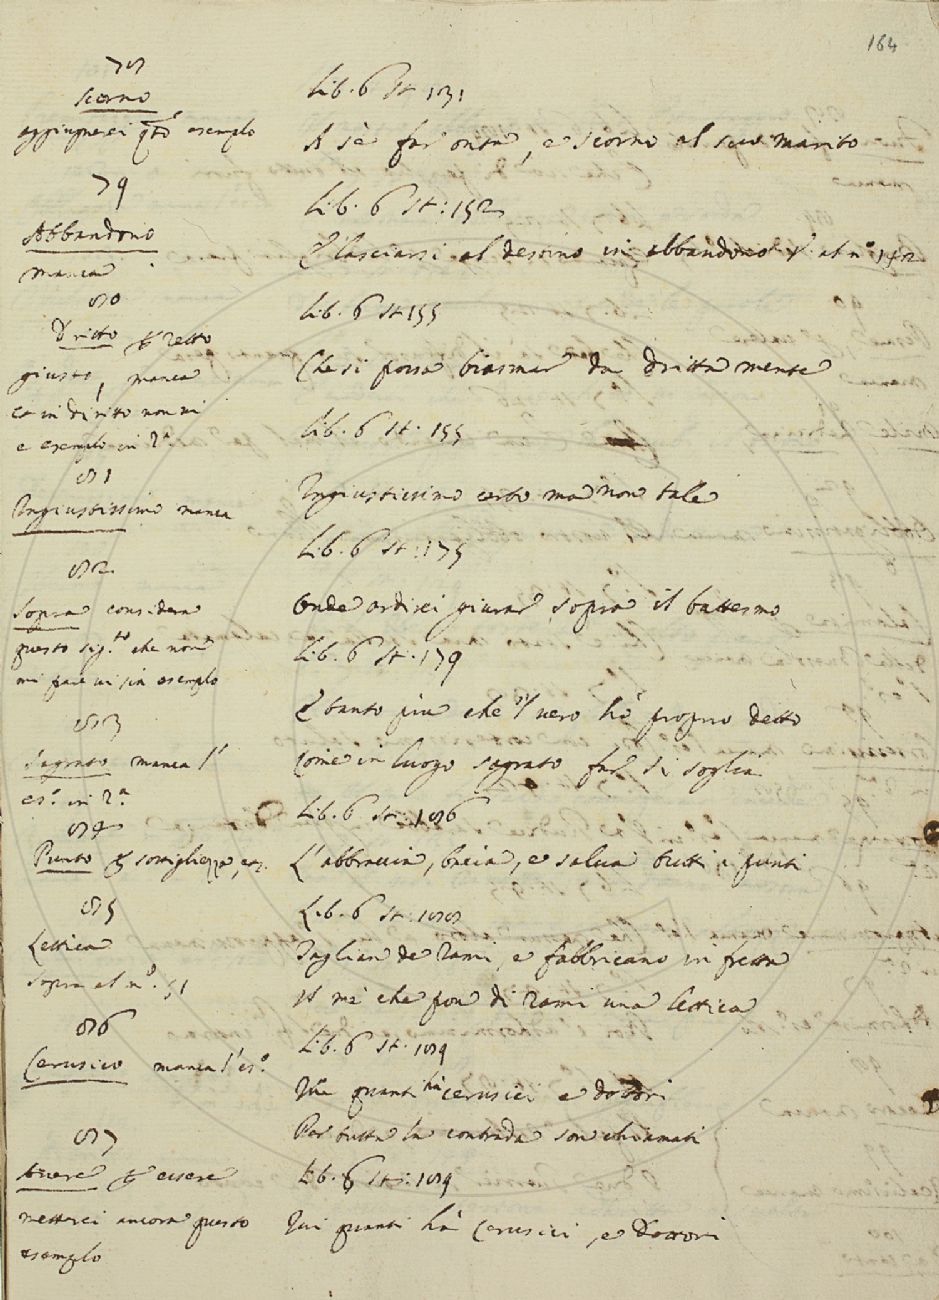 164
78
Scorno
aggiugnerci q.to esempio
Lib. 6 St 131
A sè far onta, e scorno al suo marito
79
Abbandono
manca
Lib. 6 St: 152
E lasciarsi al destino in abbandono V. al n.° 142
80
Dritto p retto
giusto, manca
ed in diritto non vi
e esempio in R.a
Lib. 6 St 155
Che si possa biasmar da dritta mente
81
Ingiustissimo manca
Lib. 6 St. 155
Ingiustissimo certo ma non tale
82
Sopra considera
questo sig.to che non
mi pare vi sia esempio
Lib. 6 St: 175
Onde ardisci giurar sopra il battesmo
83
Sagrato manca l'
es.° in R.a
Lib. 6 St. 179
E tanto più che 'l vero hò proprio detto
Come in luogo sagrato far si soglia
84
Punto p sottigliezza, etc.
Lib. 6 St: 186
L'abbraccia, bacia, e salva tutti i punti
85
Lettica
sopra al n.° 51
Lib. 6 St: 188
Taglian de rami, e fabbricano in fretta
Il me' che pon di rami una lettica
86
Cerusico manca l'es.°
Lib. 6 St. 189
Ivi quanti hà cerusici e dottori
Per tutta la contrada son chiamati
87
Avere p essere
metterci ancora questo
esempio
Lib. 6 St: 189
Ivi quanti hà Cerusici, e Dottori